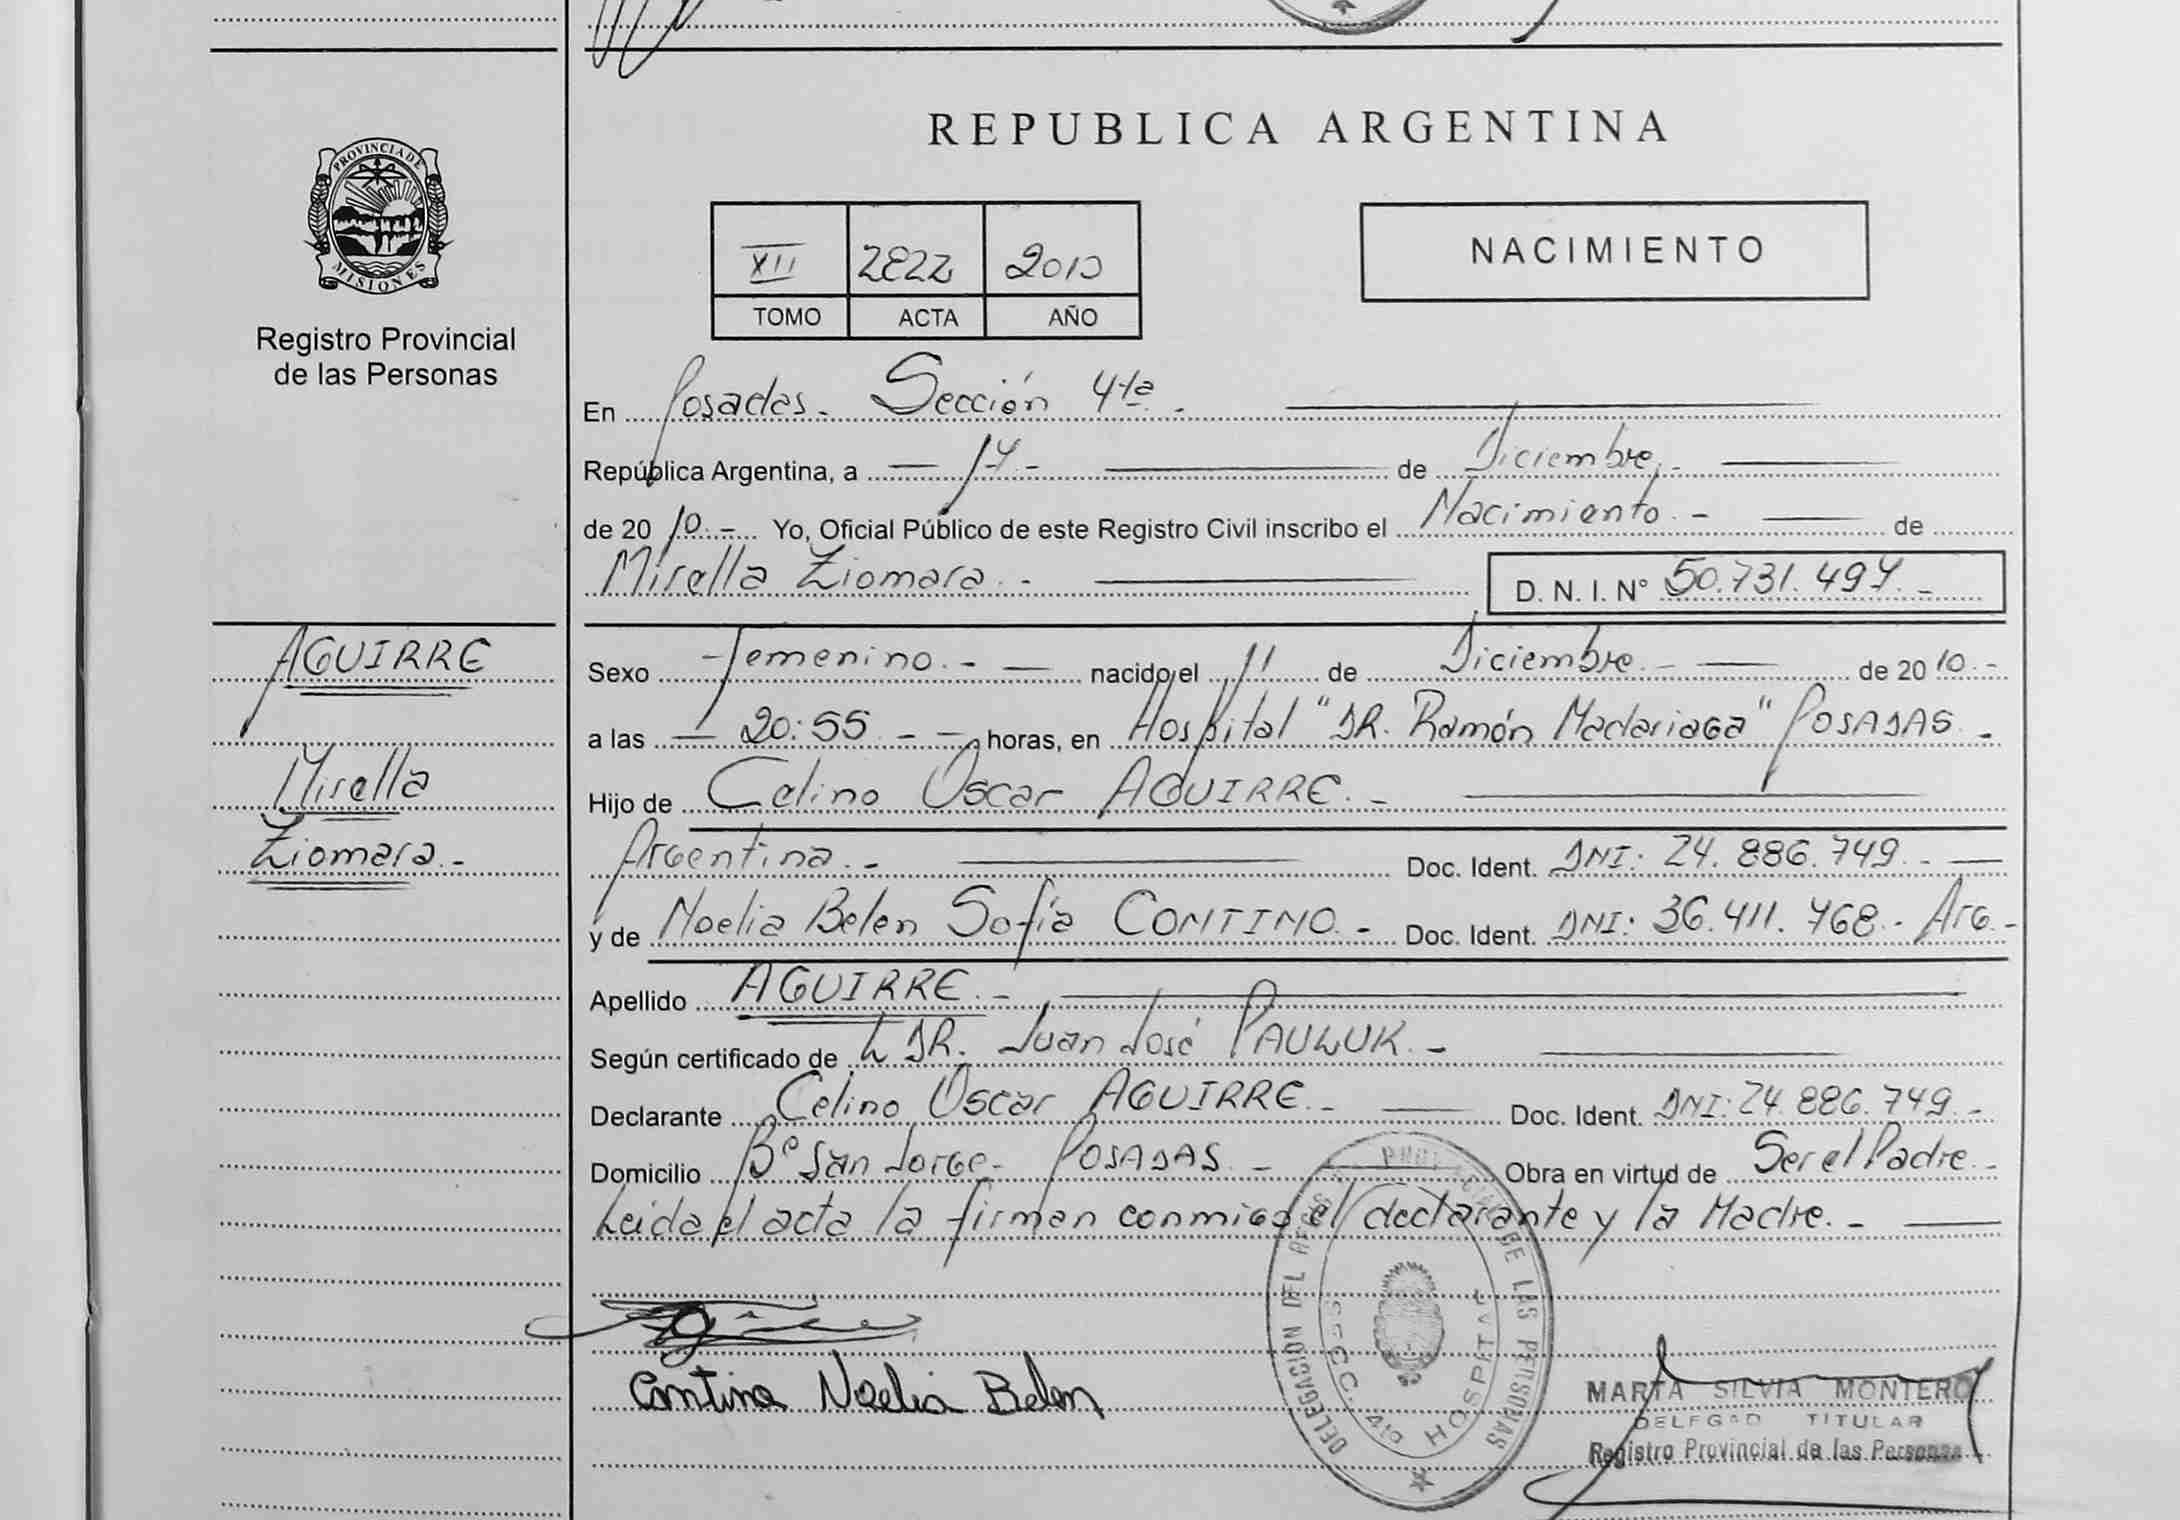 REPUBLICA ARGENTINA
PROVINCIA DE MISIONES
Registro Provincial
de las Personas
XII 2822 2010
TOMO ACTA AÑO
NACIMIENTO
En Posadas. Sección 4ta.
República Argentina, a 17 de Diciembre
de 2010. Yo, Oficial Público de este Registro Civil inscribo el Nacimiento de
Mirella Ziomara. D. N. I. N° 50.731.497
AGUIRRE
Mirella
Ziomara
Sexo Femenino nacido el 11 de Diciembre de 2010
a las 20:55 horas, en Hospital "DR. Ramón Madariaga" POSADAS
Hijo de Celino Oscar AGUIRRE
Argentina Doc. Ident. DNI: 24.886.749
y de Noelia Belen Sofía CONTINO Doc. Ident. DNI: 36.411.768 Arg.
Apellido AGUIRRE
Según certificado de DR. Juan José PAULUK
Declarante Celino Oscar AGUIRRE Doc. Ident. DNI: 24.886.749
Domicilio Bº San Jorge POSADAS Obra en virtud de Ser el Padre
Leida el acta la firman conmigo el declarante y la Madre.
Contino Noelia Belen
DELEGACION DEL DE LAS PERSONAS
SECC. 4ta HOSPITAL
MARTA SILVIA MONTERO
DELEGAD TITULAR
Registro Provincial de las Personas